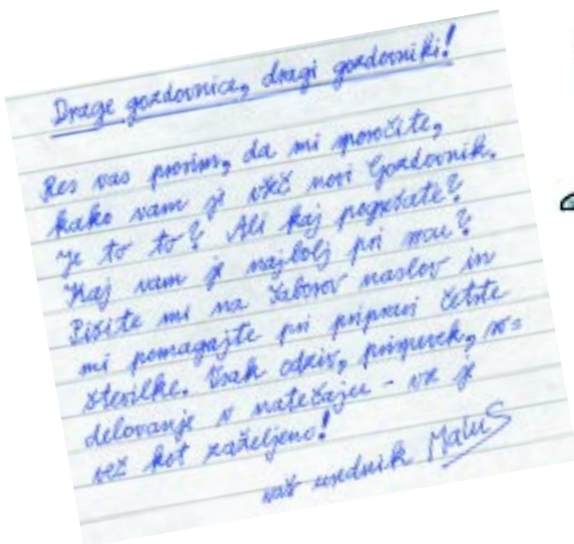 Drage gozdovnice, dragi gozdovniki!
Res vas prosim, da mi sporočite,
kako vam je všeč novi Gozdovnik.
Je to to? Ali kaj pogrešate?
Kaj vam je najbolj pri srcu?
Pišite mi na Taborov naslov in
mi pomagajte pri pripravi četrte
številke. Vsak odziv, prispevek, so=
delovanje v natečaju - vse je
več kot zaželjeno!
vaš urednik MatuS